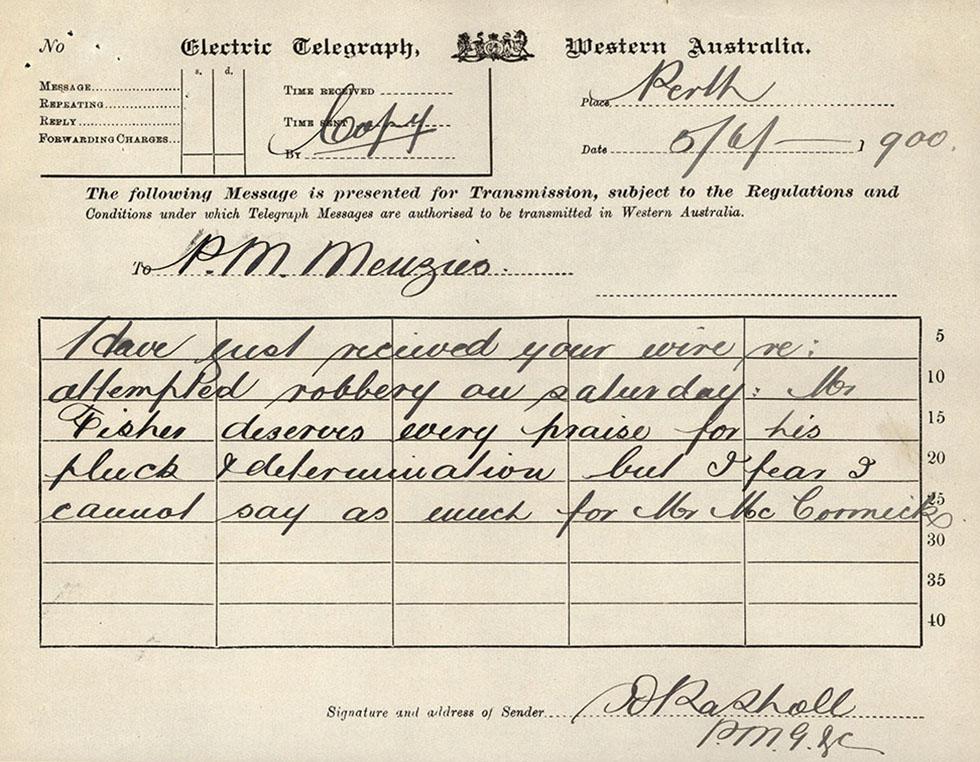 No
Electric Telegraph, Western Australia.
s. d.
MESSAGE
REPEATING
REPLY
FORWARDING CHARGES
TIME RECEIVED
TIME SENT
BY
Copy
Place Perth
Date 5/6/ — 1900.
The following Message is presented for Transmission, subject to the Regulations and
Conditions under which Telegraph Messages are authorised to be transmitted in Western Australia.
To P.M. Menzies.
I Have just recieved your wire re: 5
attempted robbery on saturday: Mr 10
Fisher deserves every praise for his 15
pluck & determination but I fear I 20
cannot say as much for Mr McCormick 25
30
35
40
Signature and address of Sender
P.M.G. &c